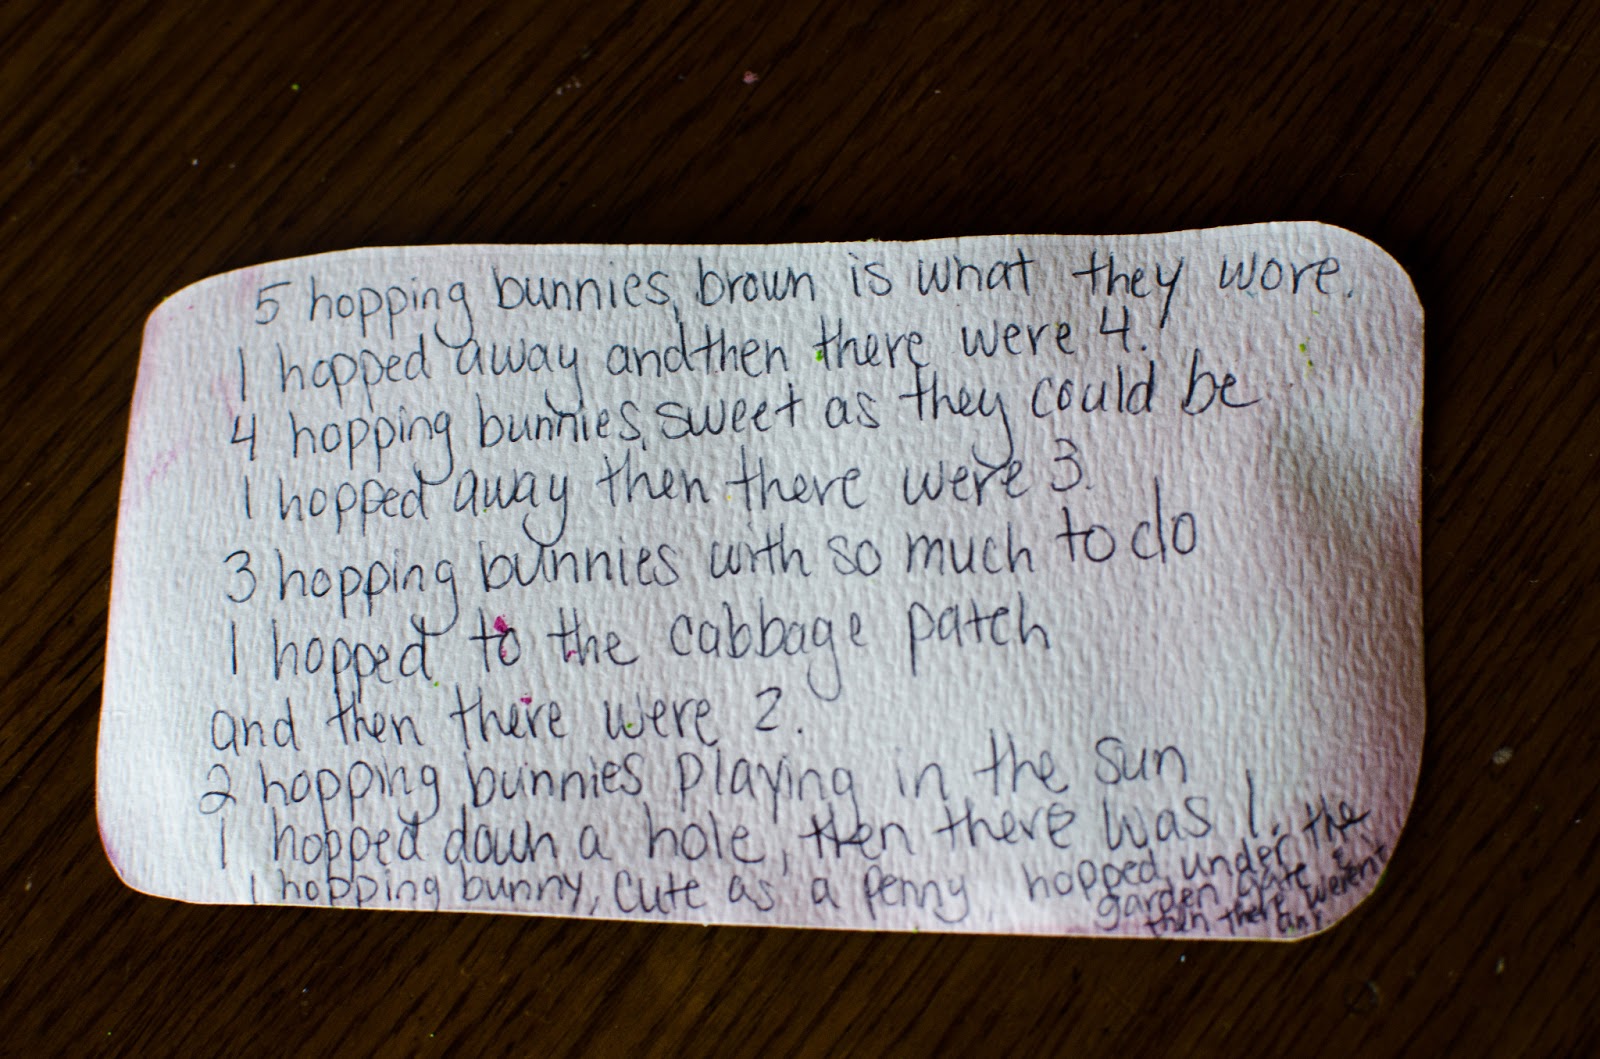 5 hopping bunnies, brown is what they wore.
1 hopped away and then there were 4.
4 hopping bunnies, sweet as they could be
1 hopped away then there were 3.
3 hopping bunnies with so much to do
1 hopped to the cabbage patch
and then there were 2.
2 hopping bunnies playing in the sun
1 hopped down a hole, then there was 1.
1 hopping bunny, cute as a penny, hopped under the
garden gate &
then there weren't
any.